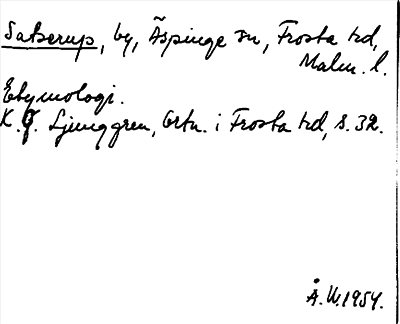 Satserup, by, Äspinge sn, Frosta hd,
Malm. l.
Etymologi.
K. G. Ljunggren, Ortn. i Frosta hd, s. 32.
Å. W. 1954.